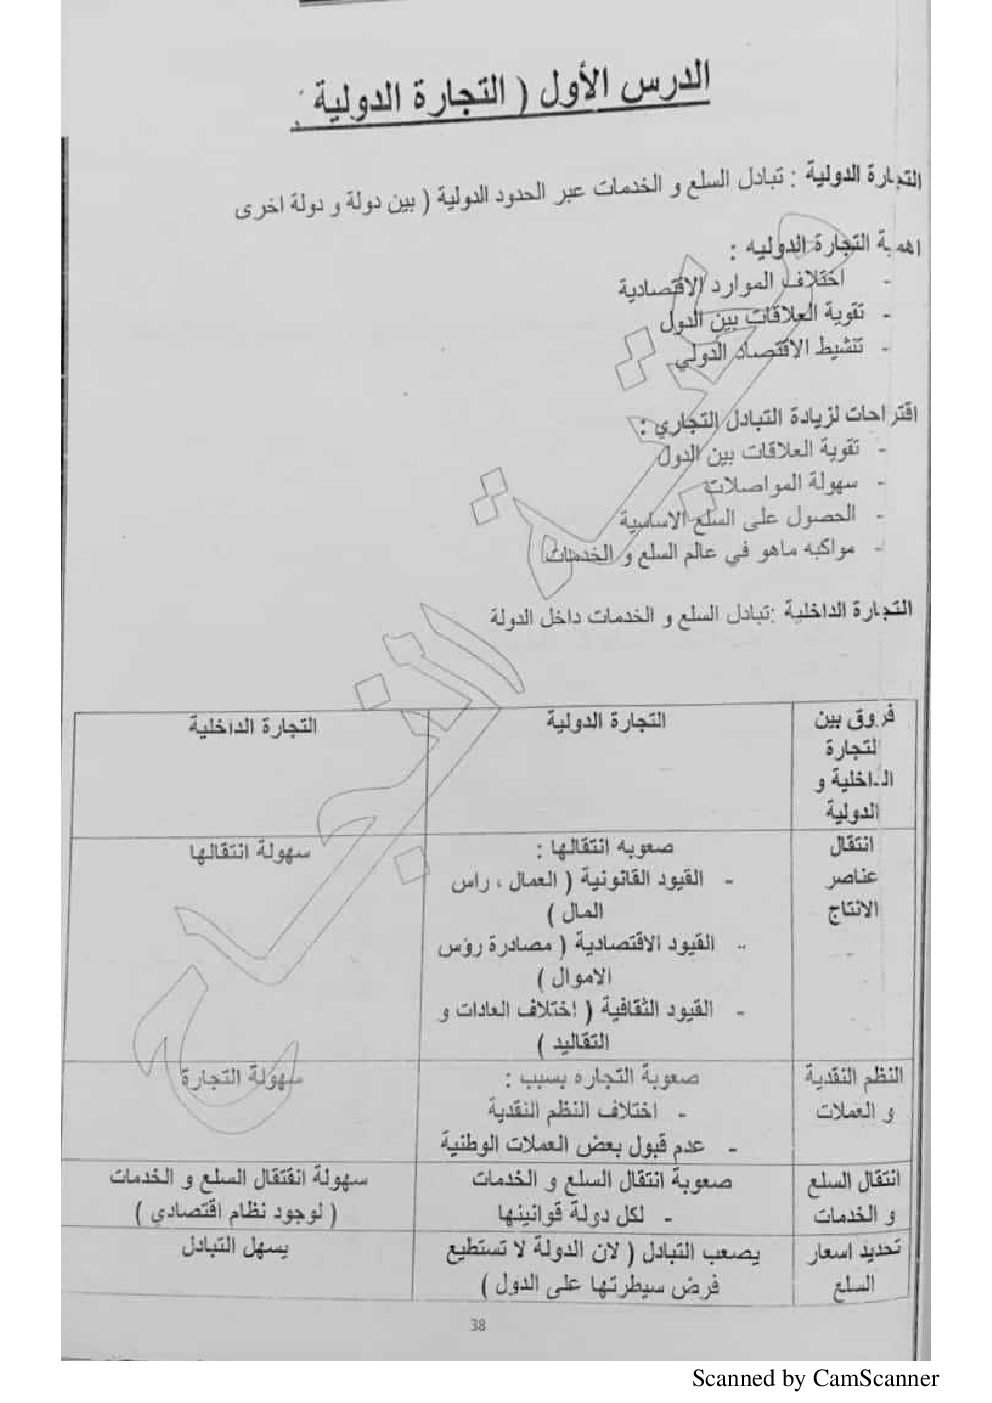 الدرس الأول ( التجارة الدولية )
التجارة الدولية : تبادل السلع و الخدمات عبر الحدود الدولية ( بين دولة و دولة اخرى
اهمية التجارة الدوليه :
- اختلاف الموارد الاقتصادية
- تقوية العلاقات بين الدول
- تنشيط الاقتصاد الدولي
اقتراحات لزيادة التبادل التجاري :
- تقوية العلاقات بين الدول
- سهولة المواصلات
- الحصول على السلع الاساسية
- مواكبه ماهو في عالم السلع و الخدمات
التجارة الداخلية :تبادل السلع و الخدمات داخل الدولة
فروق بين التجارة الداخلية و الدولية
التجارة الدولية
التجارة الداخلية
انتقال عناصر الانتاج
صعوبه انتقالها :
- القيود القانونية ( العمال ، راس
المال )
- القيود الاقتصادية ( مصادرة رؤس
الاموال )
- القيود الثقافية ( اختلاف العادات و
التقاليد )
سهولة انتقالها
النظم النقدية
و العملات
صعوبة التجاره بسبب :
- اختلاف النظم النقدية
- عدم قبول بعض العملات الوطنية
سهولة التجارة
انتقال السلع
و الخدمات
صعوبة انتقال السلع و الخدمات
- لكل دولة قوانينها
سهولة انقتقال السلع و الخدمات
( لوجود نظام اقتصادي )
تحديد اسعار
السلع
يصعب التبادل ( لان الدولة لا تستطيع
فرض سيطرتها على الدول )
يسهل التبادل
38
Scanned by CamScanner